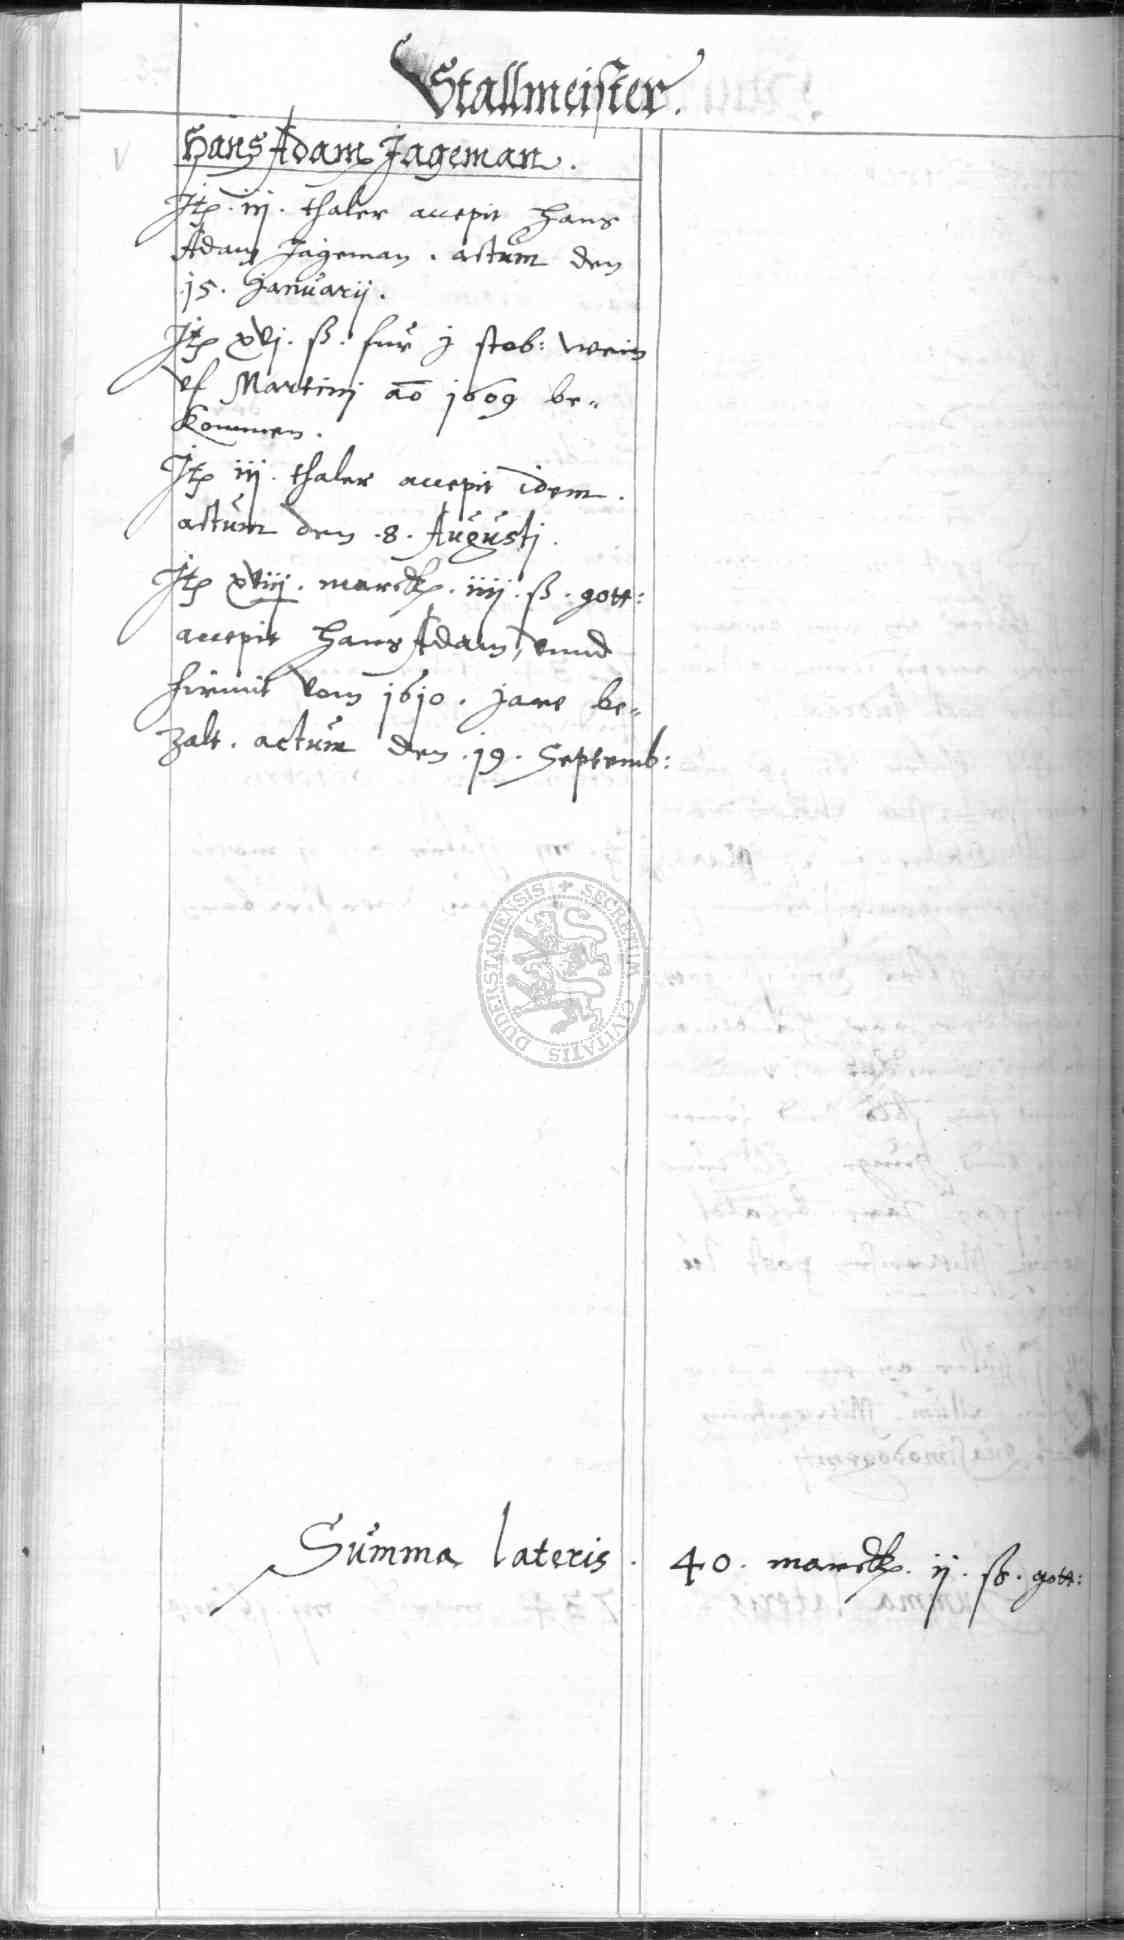 Stallmeister.
Hans Adam Jageman.
Itp. iij. thaler accepit Hans
Adam Jageman. actum den
15. Januarij.
Itp xvj. ß. fur j stob: wein
vf Martinj ao 1609 be-
kommen.
Itp iij. thaler accepit idem.
actum den .8. Augustj.
Itp xviij. marck. iiij. ß. gott:
accepit Hans Adam, vnnd
hirmit vom 1610. jare be-
zalt. actum den .19. Septemb:
SECRETUM CIVITATIS DUDERSTADIENSIS
Summa lateris. 40. marck. ij. ß. gott: